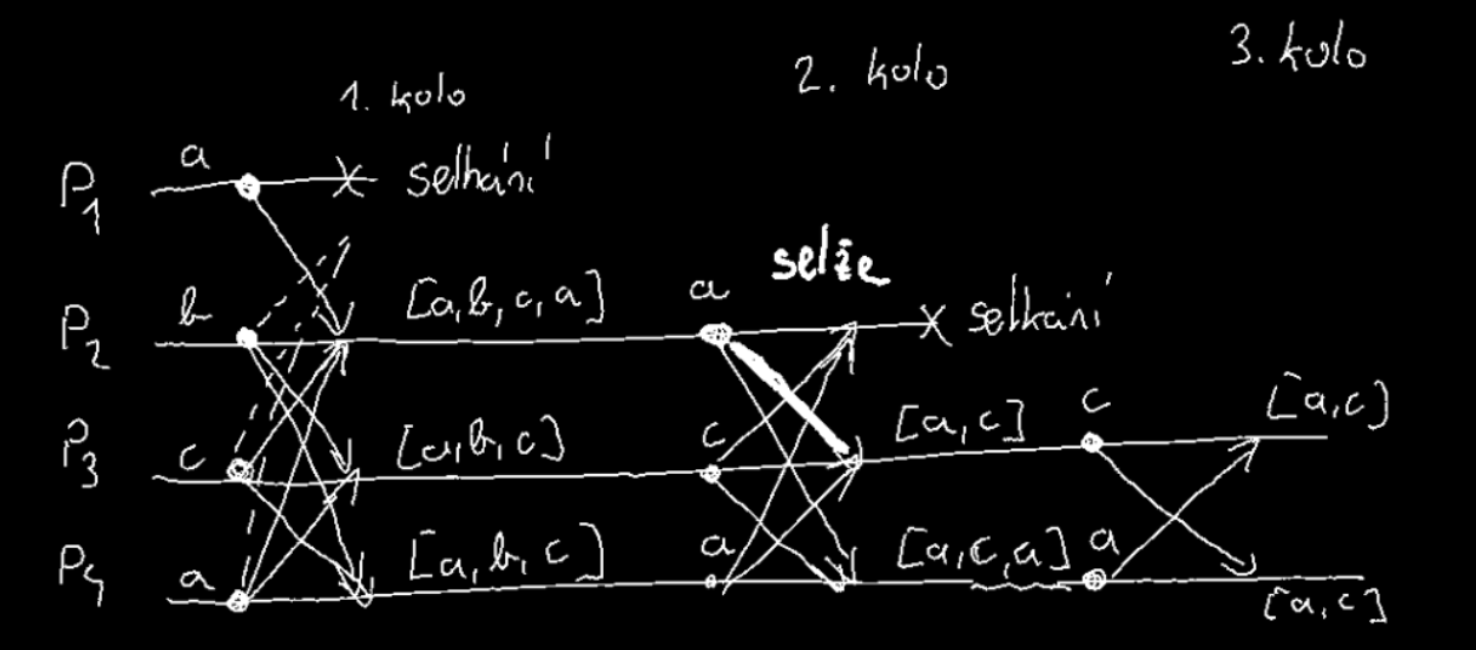 1. kolo
2. kolo
3. kolo
P1 a selhání
P2 b [a,b,c,a] a selže selhání
P3 c [a,b,c] c [a,c] c [a,c]
P4 a [a,b,c] a [a,c,a] a [a,c]